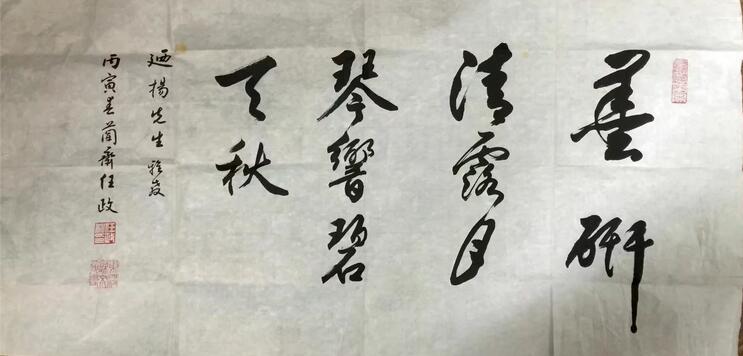 墨研
清露月
琴響碧
天秋
廼揚先生雅教
丙寅春蘭齋任政